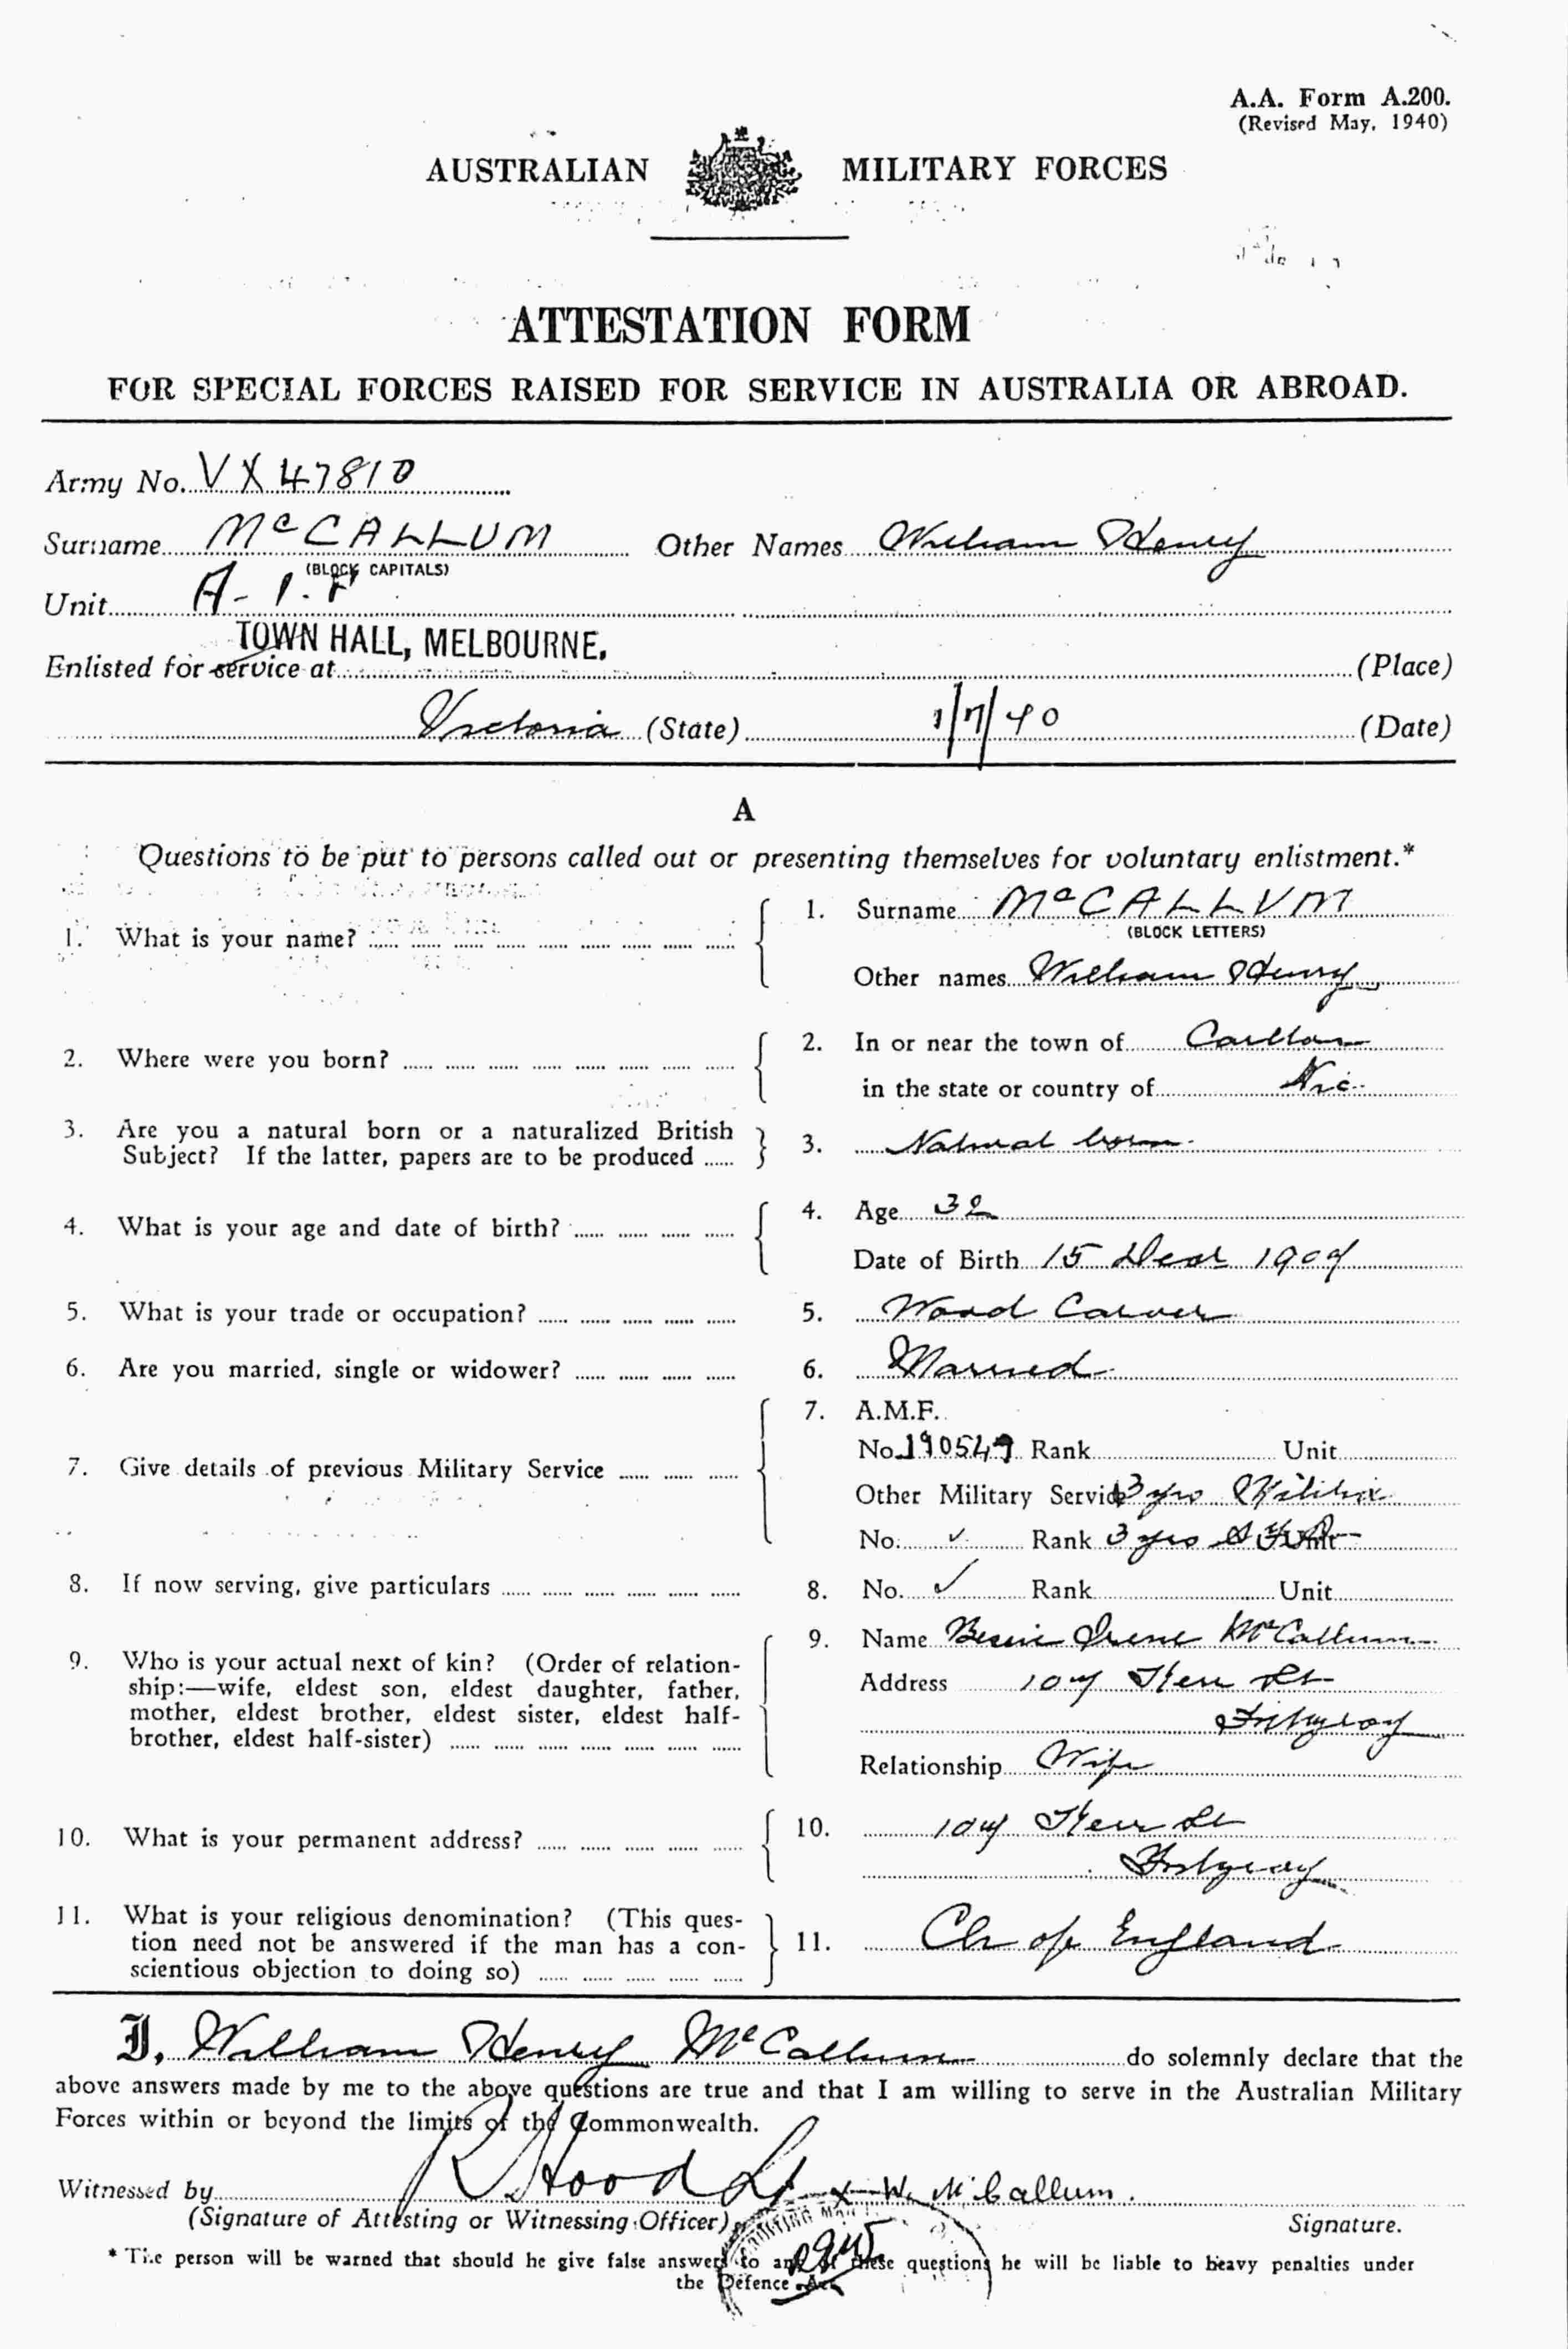 A.A. Form A.200.
(Revised May, 1940)
AUSTRALIAN MILITARY FORCES
ATTESTATION FORM
FOR SPECIAL FORCES RAISED FOR SERVICE IN AUSTRALIA OR ABROAD.
Army No. VX47810
Surname McCALLUM Other Names William Henry
(BLOCK CAPITALS)
Unit A.I.F
TOWN HALL, MELBOURNE.
Enlisted for service at (Place)
Victoria (State) 1/7/40 (Date)
A
Questions to be put to persons called out or presenting themselves for voluntary enlistment.*
1. What is your name? 1. Surname McCALLUM
(BLOCK LETTERS)
Other names William Henry
2. Where were you born? 2. In or near the town of Carlton
in the state or country of Vic.
3. Are you a natural born or a naturalized British Subject? If the latter, papers are to be produced 3. Natural born.
4. What is your age and date of birth? 4. Age 32
Date of Birth 15 1907
5. What is your trade or occupation? 5. Wood Carver
6. Are you married, single or widower? 6. Married
7. Give details of previous Military Service 7. A.M.F.
No. 190549 Rank Unit
Other Military Service 3 yrs Militia
No. Rank 3 yrs
8. If now serving, give particulars 8. No. Rank Unit
9. Who is your actual next of kin? (Order of relation-
ship:—wife, eldest son, eldest daughter, father,
mother, eldest brother, eldest sister, eldest half-
brother, eldest half-sister)
9. Name Bessie Irene McCallum
Address 107 Kerr St
Fitzroy
Relationship Wife
10. What is your permanent address? 10. 107 Kerr St
Fitzroy
11. What is your religious denomination? (This ques-
tion need not be answered if the man has a con-
scientious objection to doing so) 11. Ch of England
I, William Henry McCallum do solemnly declare that the
above answers made by me to the above questions are true and that I am willing to serve in the Australian Military
Forces within or beyond the limits of the Commonwealth.
Witnessed by R Hood Lt x W. McCallum.
(Signature of Attesting or Witnessing Officer) Signature.
* The person will be warned that should he give false answers to any of these questions he will be liable to heavy penalties under
the Defence Act.